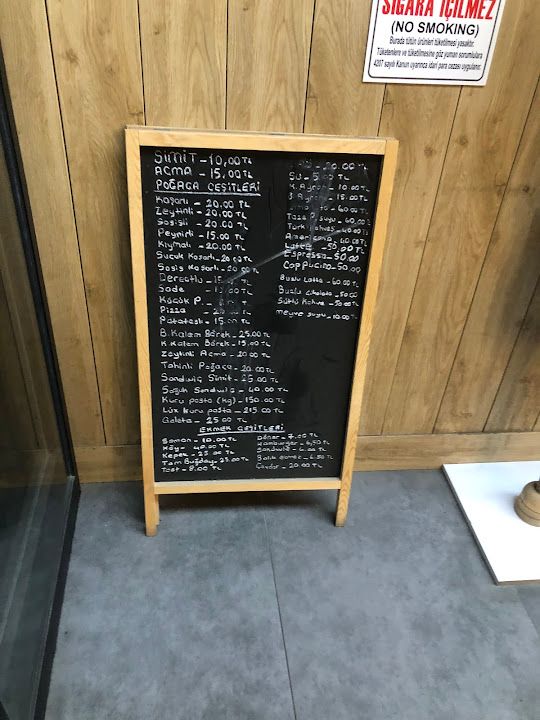 SİGARA İÇİLMEZ
(NO SMOKING)
Burada tütün ürünleri tüketilmesi yasaktır.
Tüketenlere ve tüketilmesine göz yuman sorumlulara
4207 sayılı Kanun uyarınca idari para cezası uygulanır.
SİMİT - 10,00 TL
AÇMA - 15,00 TL
POĞAÇA ÇEŞİTLERİ
Kaşarlı - 20.00 TL
Zeytinli - 20.00 TL
Sosisli - 20.00 TL
Peynirli - 15.00 TL
Kıymalı - 20.00 TL
Sucuk Kaşarlı - 20.00 TL
Sosis Kaşarlı - 20.00 TL
Dereotlu - TL
Sade -
Küçük P. -
Pizza -
Patatesli - 15.00 TL
B. Kalem Börek - 25.00 TL
K. Kalem Börek - 15.00 TL
Zeytinli Açma - 20.00 TL
Tahinli Poğaça - 20.00 TL
Sandwiç Simit - 25.00 TL
Soğuk Sandwiç - 40.00 TL
Kuru pasta (kg) - 150.00 TL
Lüx kuru pasta - 215.00 TL
Galeta - 25.00 TL
20.00 TL
SU - 5.00 TL
Ayran 10.00 TL
Ayran 15.00 TL
60.00 TL
Taze suyu - 60.00 TL
Türk Kahvesi 40.00 TL
Americano - 60.00 TL
Latte 50.00 TL
Espresso - 50.00
Cappucino - 50.00
Buzlu Latte - 60.00 TL
Buzlu Çikolata - 50.00
Sütlü Kahve - 50.00 TL
meyve suyu - 10.00 TL
EKMEK ÇEŞİTLERİ
Saman - 10.00 TL
Köy - 40.00 TL
Kepek - 25.00 TL
Tam Buğday - 25.00 TL
Tost - 8.00 TL
Döner - 7.00 TL
Hamburger - 6,50 TL
Sandwiç - 6.00 TL
Balık ekmek - 6.50 TL
Çavdar - 20.00 TL